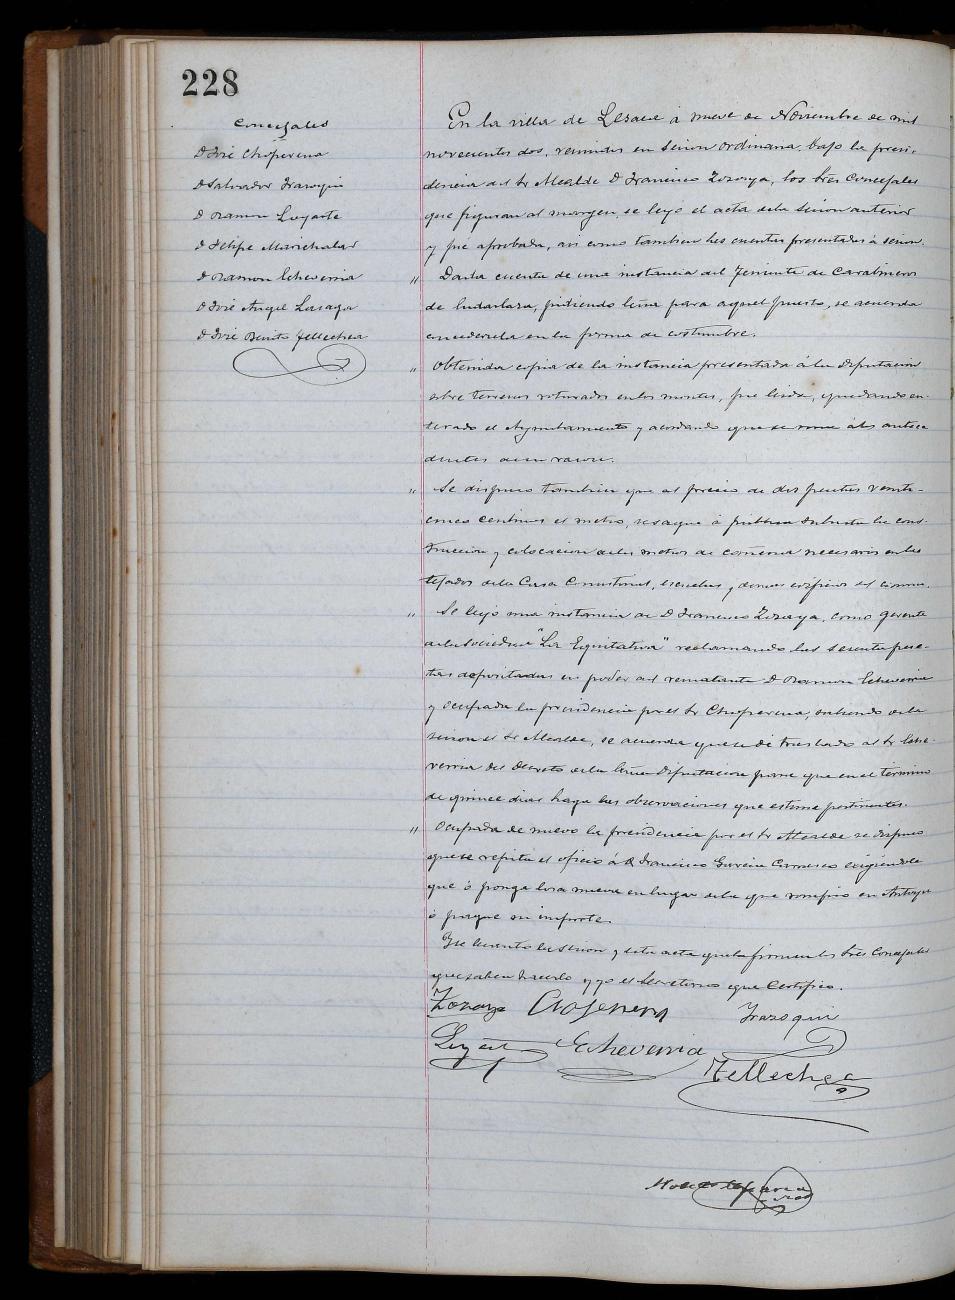 228
Concejales
D José Choperena
D Salvador Irazoqui
D Ramon Lugarte
D Felipe Marichalar
D Ramon Echeverria
D José Angel Lasaga
D José Benito Tellechea
En la villa de Lesaca á nueve de Noviembre de mil
novecientos dos, reunidos en sesion ordinaria, bajo la presi-
dencia del Sr Alcalde D Francisco Zozaya, los Sres Concejales
que figuran al margen, se leyó el acta de la sesion anterior
y fué aprobada, asi como tambien las cuentas presentadas á sesion.
" Dada cuenta de una instancia del Teniente de Carabineros
de Endarlaza, pidiendo leña para aquel puesto, se acuerda
concedersela en la forma de costumbre.
" Obtenida copia de la instancia presentada á la Diputacion
sobre terrenos roturados en los montes, fué leida, quedando en-
terado el Ayuntamiento y acordando que se una á los antece
dentes de su razon.
" Se dispuso tambien que al precio de dos pesetas veinti-
cinco centimos el metro, se saque á pública subasta la cons-
truccion y colocacion de los metros de cañeria necesarios en los
tejados de la Casa Consistorial, escuelas y demas edificios del comun.
" Se leyó una instancia de D Francisco Zozaya, como gerente
de la sociedad "La Equitativa" reclamando las sesenta pese-
tas depositadas en poder del rematante D Ramon Echeverria
y ocupada la presidencia por el Sr Choperena, saliendo de la
sesion el Sr Alcalde, se acuerda que se dé traslado al Sr Eche-
verria del Decreto de la Diputacion para que en el termino
de quince dias haga las observaciones que estime pertinentes.
" Ocupada de nuevo la presidencia por el Sr Alcalde se dispuso
que se repita el oficio á D Francisco Garcia Carrasco exigiendole
que ó ponga losa nueva en lugar de la que rompió en
ó pague su importe.
Y se levantó la sesion y esta acta que la firman los Sres Concejales
que saben hacerlo y yo el Secretario que Certifico.
Zozaya Choperena Irazoqui
Lugarte Echeverria
Tellechea